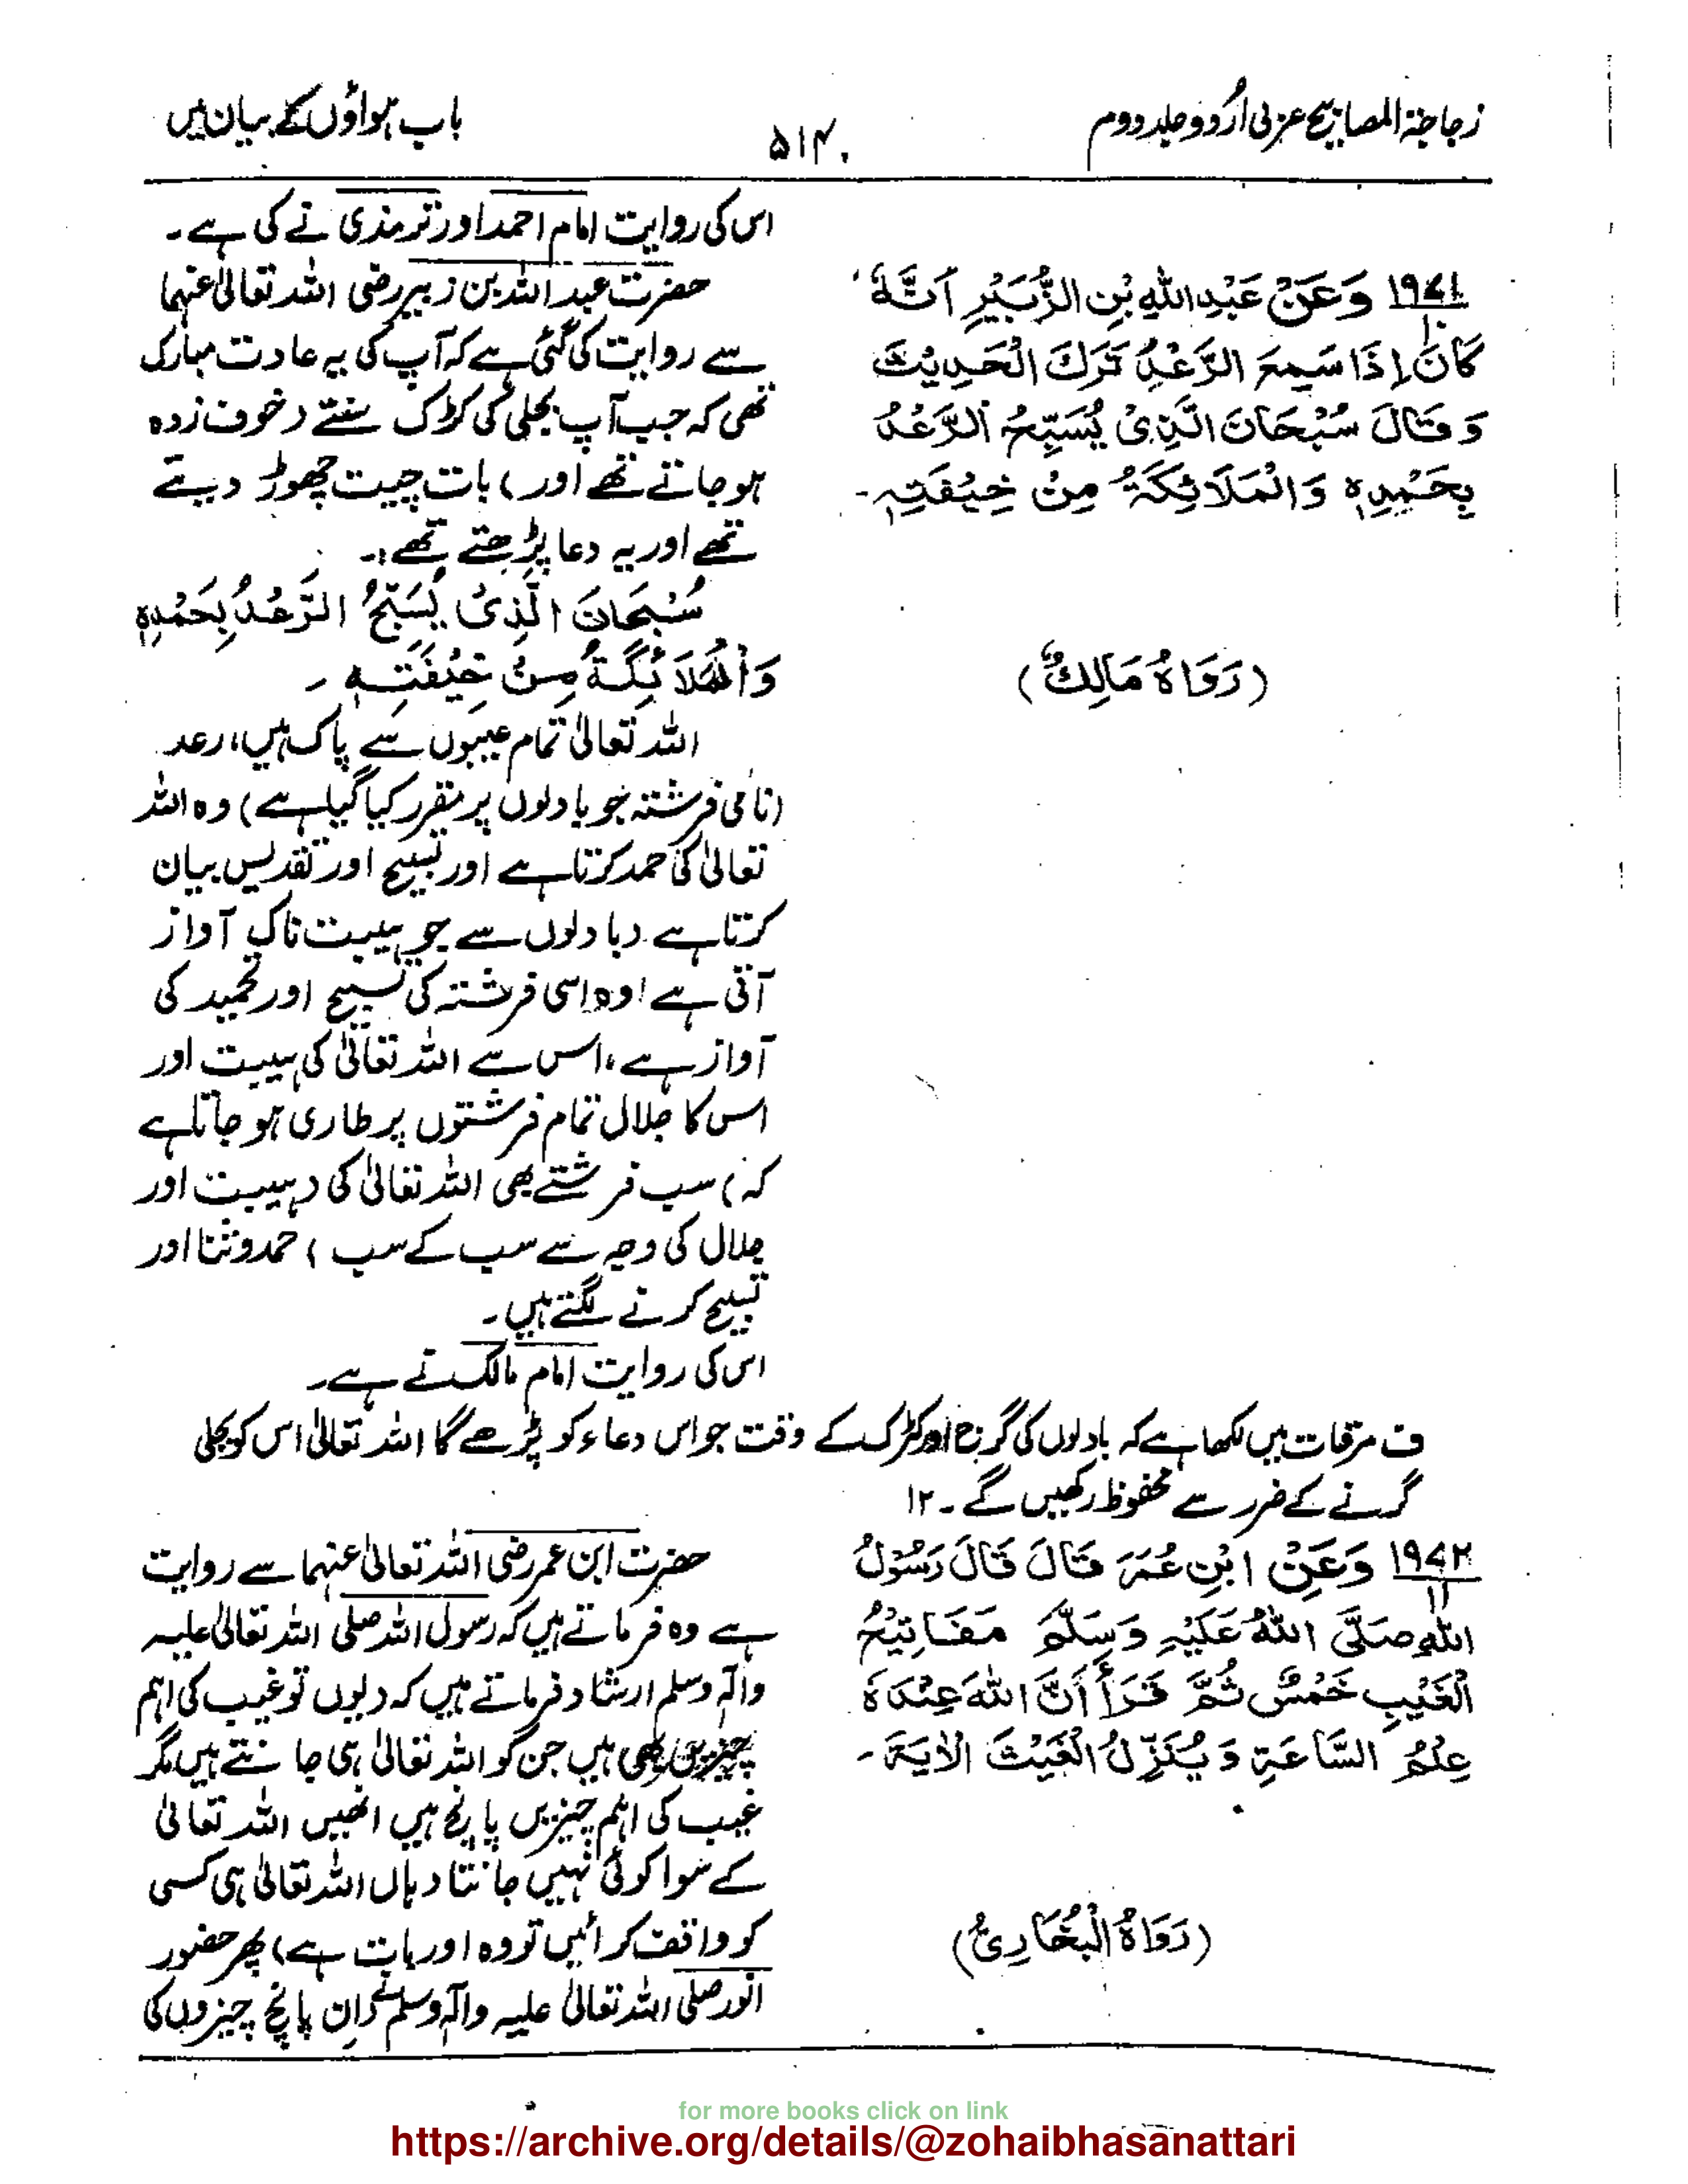 زجاجۃ المصابیح عربی اُردو جلد دوم
۵۱۴
باب ہواؤں کے بیان میں
اس کی روایت امام احمد اور ترمذی نے کی ہے۔
۱۹۷۱
۱۰
وَعَنْ عَبْدِ اللهِ بْنِ الزُّبَيْرِ اَنَّهٗ
كَانَ اِذَا سَمِعَ الرَّعْدَ تَرَكَ الْحَدِيْثَ
وَقَالَ سُبْحَانَ الَّذِىْ يُسَبِّحُ الرَّعْدُ
بِحَمْدِهٖ وَالْمَلَائِكَةُ مِنْ خِيْفَتِهٖ۔
(رَوَاهُ مَالِكٌ)
حضرت عبداللہ بن زبیر رضی اللہ تعالیٰ عنہما
سے روایت کی گئی ہے کہ آپ کی یہ عادت مبارک
تھی کہ جب آپ بجلی کی کڑک سنتے (خوف زدہ
ہو جاتے تھے اور) بات چیت چھوڑ دیتے
تھے اور یہ دعا پڑھتے تھے:۔
سُبْحَانَ الَّذِىْ يُسَبِّحُ الرَّعْدُ بِحَمْدِهٖ
وَالْمَلَائِكَةُ مِنْ خِيْفَتِهٖ ۔
اللہ تعالیٰ تمام عیبوں سے پاک ہیں، رعد
(نامی فرشتہ جو بادلوں پر مقرر کیا گیا ہے) وہ اللہ
تعالیٰ کی حمد کرتا ہے اور تسبیح اور تقدیس بیان
کرتا ہے (بادلوں سے جو ہیبت ناک آواز
آتی ہے اوہ اسی فرشتہ کی تسبیح اور تحمید کی
آواز ہے، اس سے اللہ تعالیٰ کی ہیبت اور
اس کا جلال تمام فرشتوں پر طاری ہو جاتا ہے
کہ) سب فرشتے بھی اللہ تعالیٰ کی (ہیبت اور
جلال کی وجہ سے سب کے سب) حمد و ثنا اور
تسبیح کرنے لگتے ہیں۔
اس کی روایت امام مالک نے ہے۔
ف مرقات میں لکھا ہے کہ بادلوں کی گرج اور کڑک کے وقت جو اس دعاء کو پڑھے گا اللہ تعالیٰ اس کو بجلی
گرنے کے ضرر سے محفوظ رکھیں گے ۔۱۲
۱۹۷۲
۱۱
وَعَنْ ابْنِ عُمَرَ قَالَ قَالَ رَسُوْلُ
اللهِ صَلَّى اللهُ عَلَيْهِ وَسَلَّمَ مَفَاتِيْحُ
الْغَيْبِ خَمْسٌ ثُمَّ قَرَأَ أَنَّ اللهَ عِنْدَهٗ
عِلْمُ السَّاعَةِ وَيُنَزِّلُ الْغَيْثَ الْاٰيَةَ۔
(رَوَاهُ الْبُخَارِىُّ)
حضرت ابن عمر رضی اللہ تعالیٰ عنہما سے روایت
ہے وہ فرماتے ہیں کہ رسول اللہ صلی اللہ تعالیٰ علیہ
وآلہ وسلم ارشاد فرماتے ہیں کہ (یوں تو غیب کی اہم
چیزیں بھی ہیں جن کو اللہ تعالیٰ ہی جانتے ہیں مگر
غیب کی اہم چیزیں پانچ ہیں انھیں اللہ تعالیٰ
کے سوا کوئی نہیں جانتا (ہاں اللہ تعالیٰ ہی کسی
کو واقف کرائیں تو وہ اور بات ہے) پھر حضور
انور صلی اللہ تعالیٰ علیہ وآلہ وسلم نے (ان پانچ چیزوں کی
for more books click on link
https://archive.org/details/@zohaibhasanattari